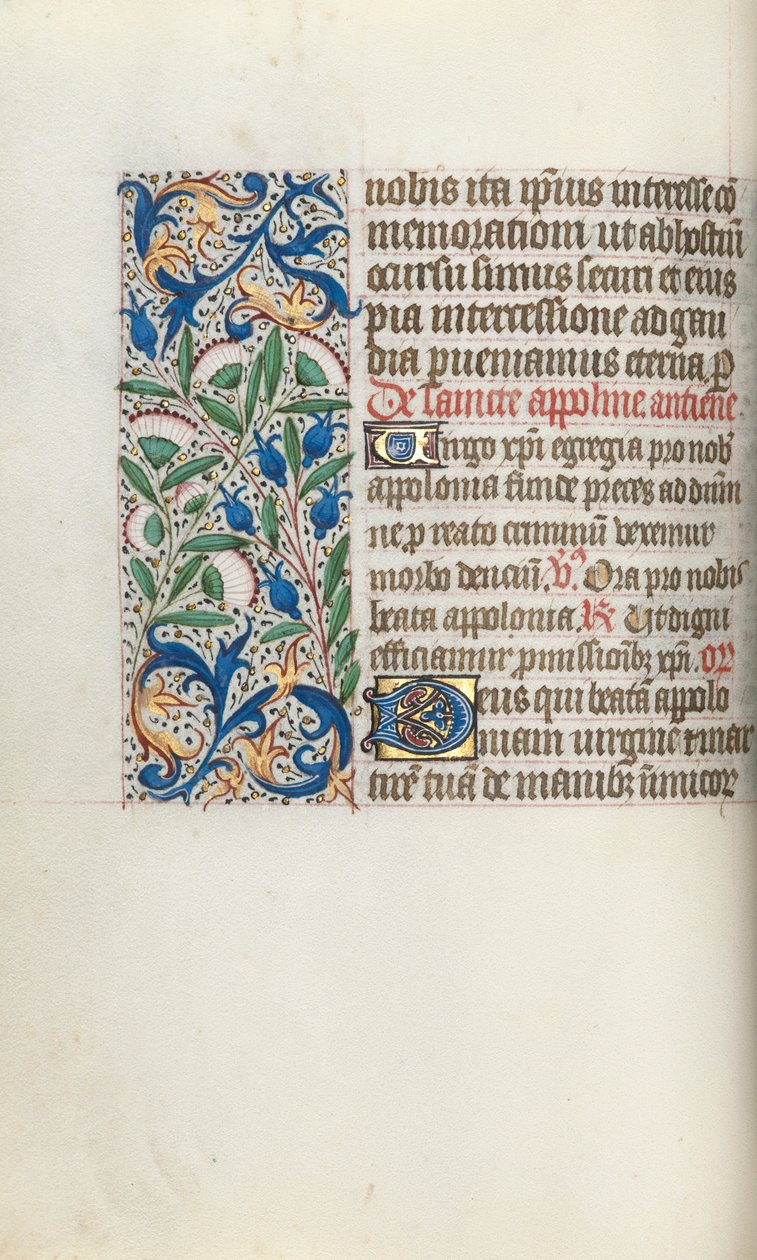 nobis ita ip̄ius interesse cō
memorationi ut ab hostiū
occursu simus securi et eius
pia intercessione ad gau
dia pueniamus eterna. ꝑ
De saincte appoline. antiene.
Uirgo xp̄i egregia pro nob̄
appolonia funde preces ad dn̄m
ne ꝓ reatu criminū vexemur
morbo denciū. V̄. Ora pro nobis
beata appolonia. R̄ Ut digni
efficiamur ꝓmissioīb; xp̄i. or̄
Deus qui beatā appolo
niam uirginē ⁊ mar
tirē tuā de manib; inimicor